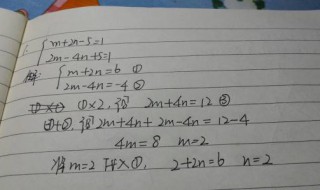 { m+2n-5=1
2m-4n+5=1
解: { m+2n=6 ①
2m-4n=-4 ②
①×2,得 2m+4n=12 ③
③+②,得 2m+4n+2m-4n=12-4
4m=8 m=2
将m=2代入①, 2+2n=6 n=2